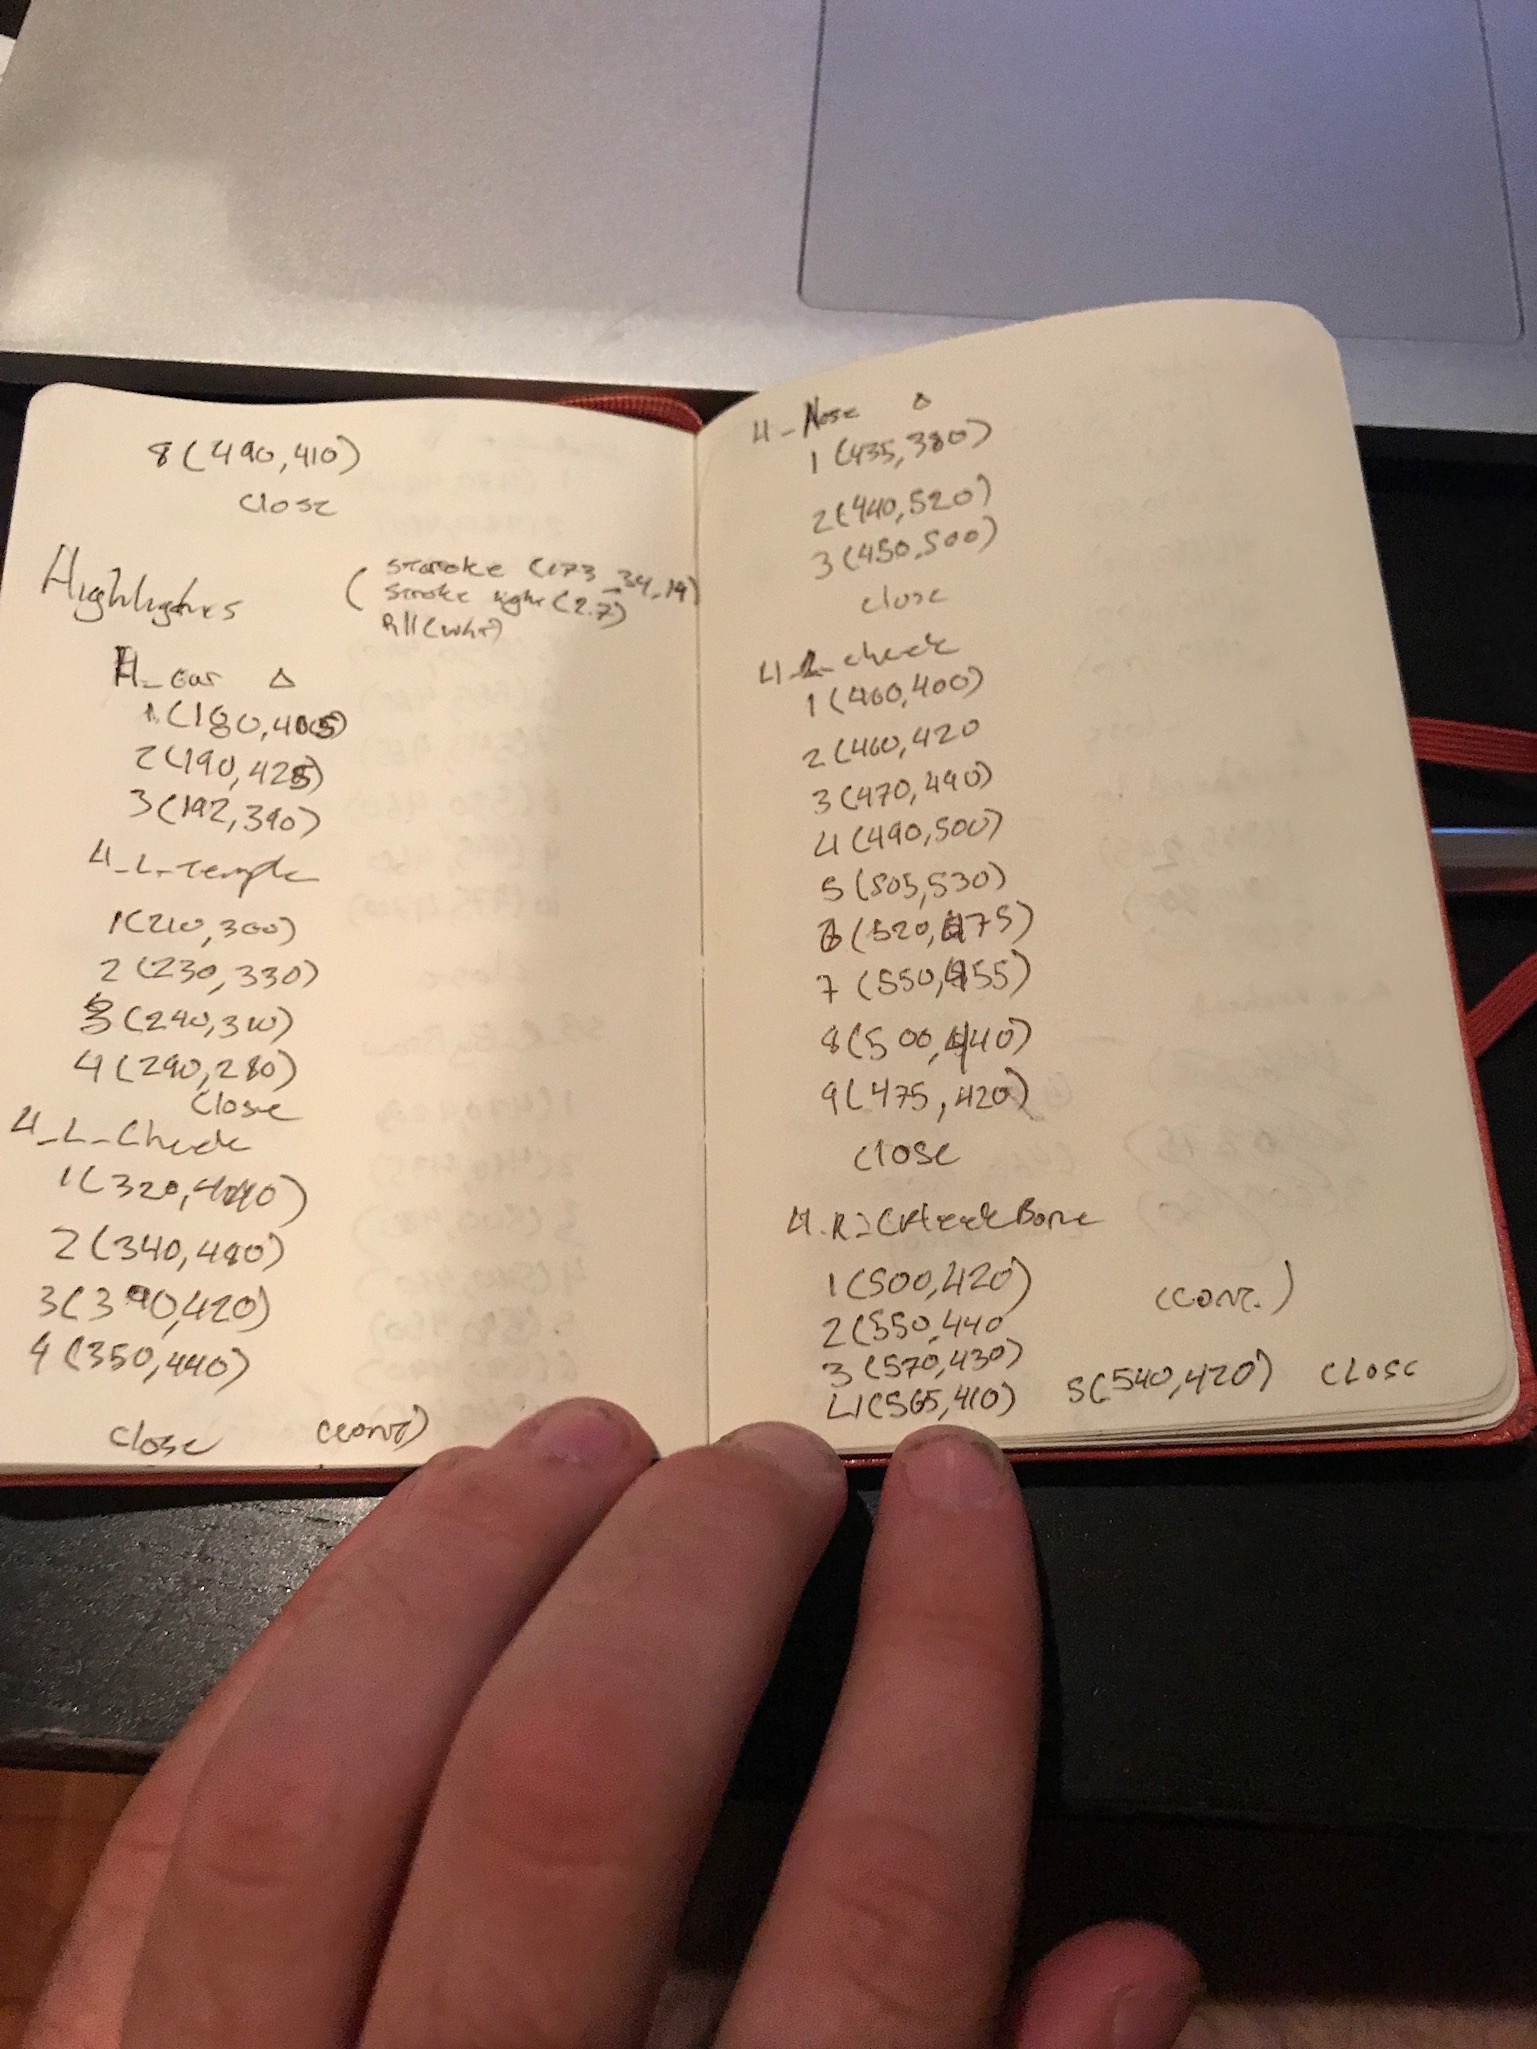 8(490,410)
close
Highlights
(stroke (173,34,14)
stroke
fill(
H_ear △
1(180,405)
2(190,425)
3(192,390)
H_L_Temple
1(210,300)
2(230,330)
3(240,310)
4(290,280)
close
H_L_Cheek
1(320,440)
2(340,480)
3(390,420)
4(350,440)
close (cont)
H_Nose △
1(435,380)
2(440,520)
3(450,500)
close
H_R_cheek
1(460,400)
2(460,420
3(470,490)
4(490,500)
5(505,530)
6(520,475)
7(550,455)
8(500,440)
9(475,420)
close
H_R_CHeekBone
1(500,420) (cont.)
2(550,440
3(570,430)
4(565,410) 5(540,420) close